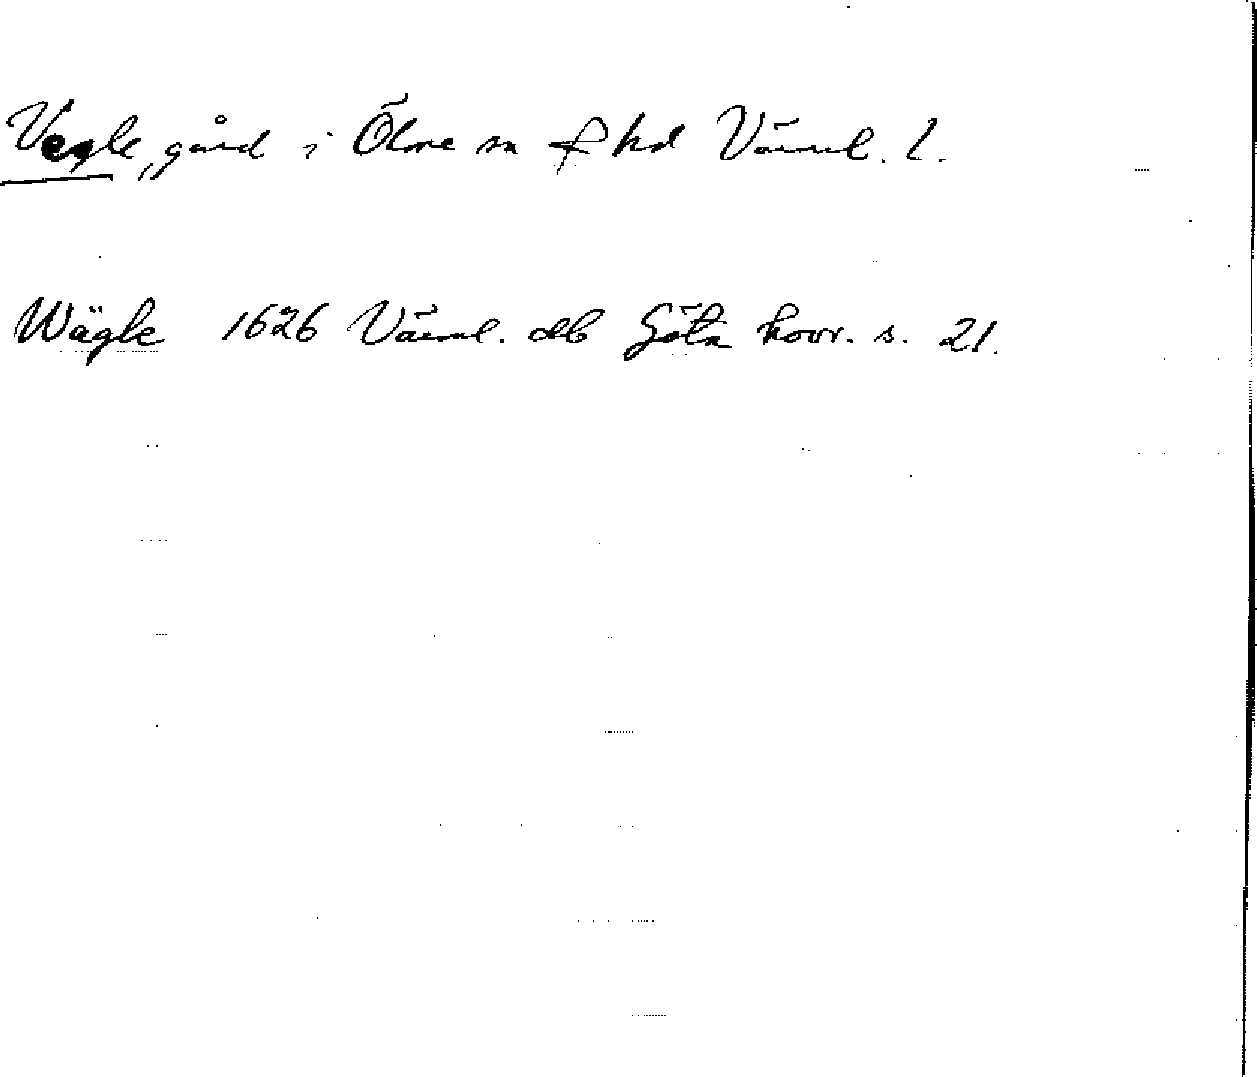 Vegle, gård i Ölme sn f hd Värml. l.
Wägle 1626 Värml. db Göta hovr. s. 21.